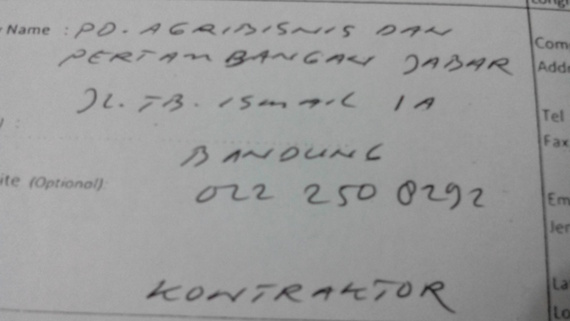 Name : PD. AGRIBISNIS DAN
PERTAMBANGAN JABAR
JL. TB. ISMAIL 1A
BANDUNG
ite (Optional):
022 250 8292
KONTRAKTOR
Com
Addr
Tel
Fax
Em
Jer
La
Lo